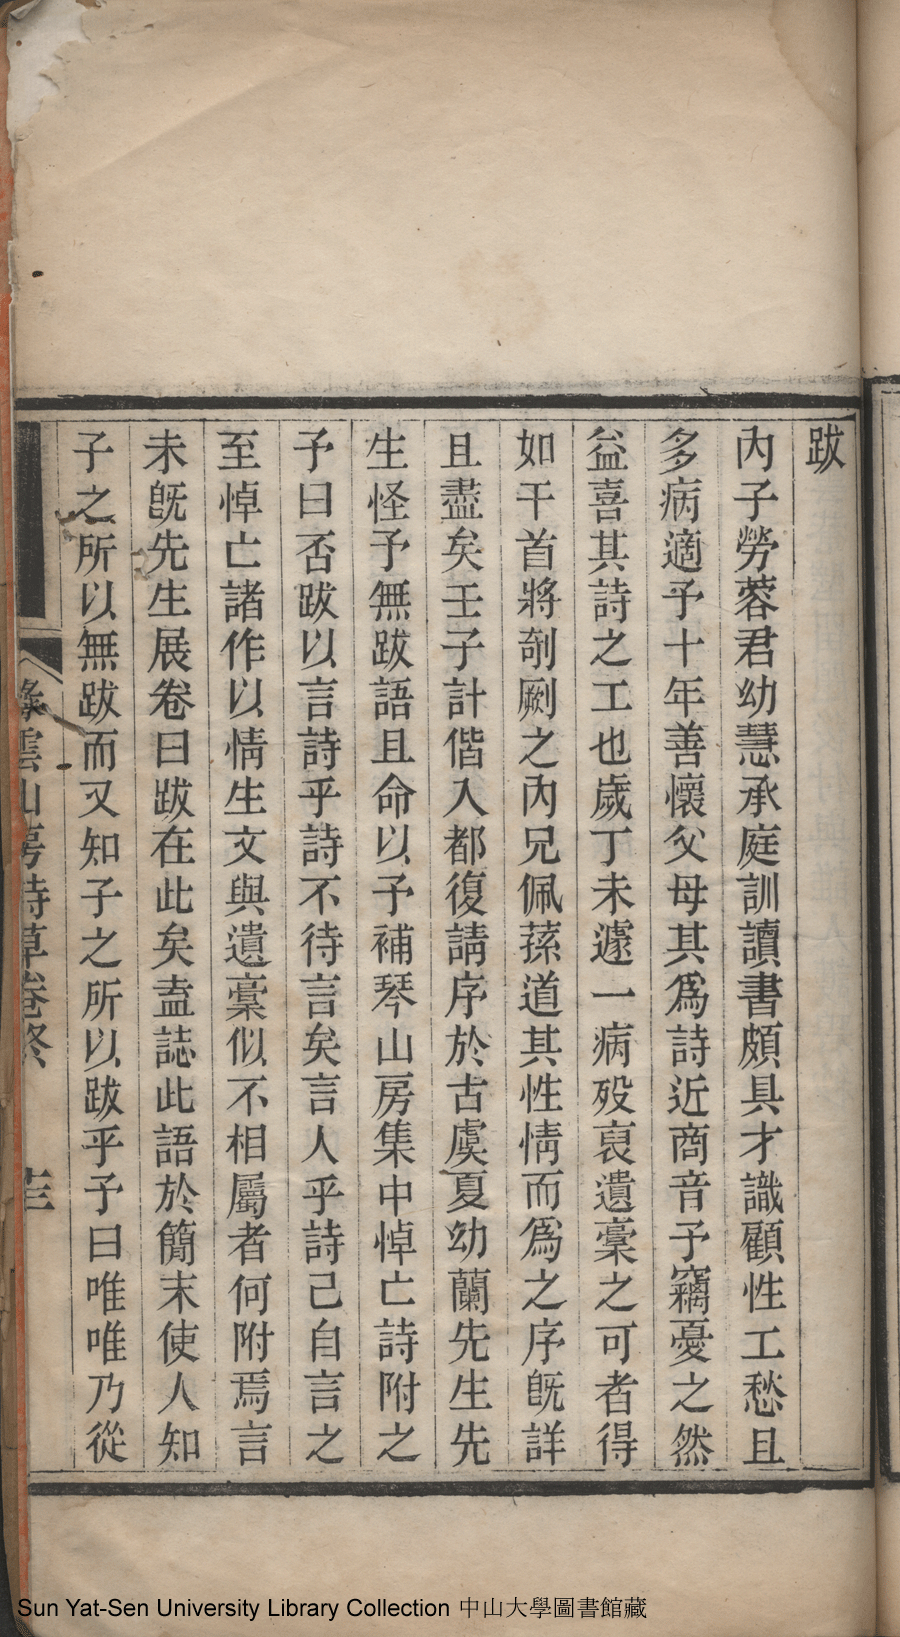 跋
內子勞蓉君幼慧承庭訓讀書頗具才識顧性工愁且
多病適予十年善懷父母其爲詩近商音予竊憂之然
益喜其詩之工也歲丁未遽一病歿裒遺稾之可者得
如干首將剞劂之內兄佩蓀道其性情而爲之序旣詳
且盡矣壬子計偕入都復請序於古虞夏幼蘭先生先
生怪予無跋語且命以予補琴山房集中悼亡詩附之
予曰否跋以言詩乎詩不待言矣言人乎詩己自言之
至悼亡諸作以情生文與遺稾似不相屬者何附焉言
未旣先生展卷曰跋在此矣盍誌此語於簡末使人知
子之所以無跋而又知子之所以跋乎予曰唯唯乃從
雲山房詩草卷終
Sun Yat-Sen University Library Collection 中山大學圖書館藏